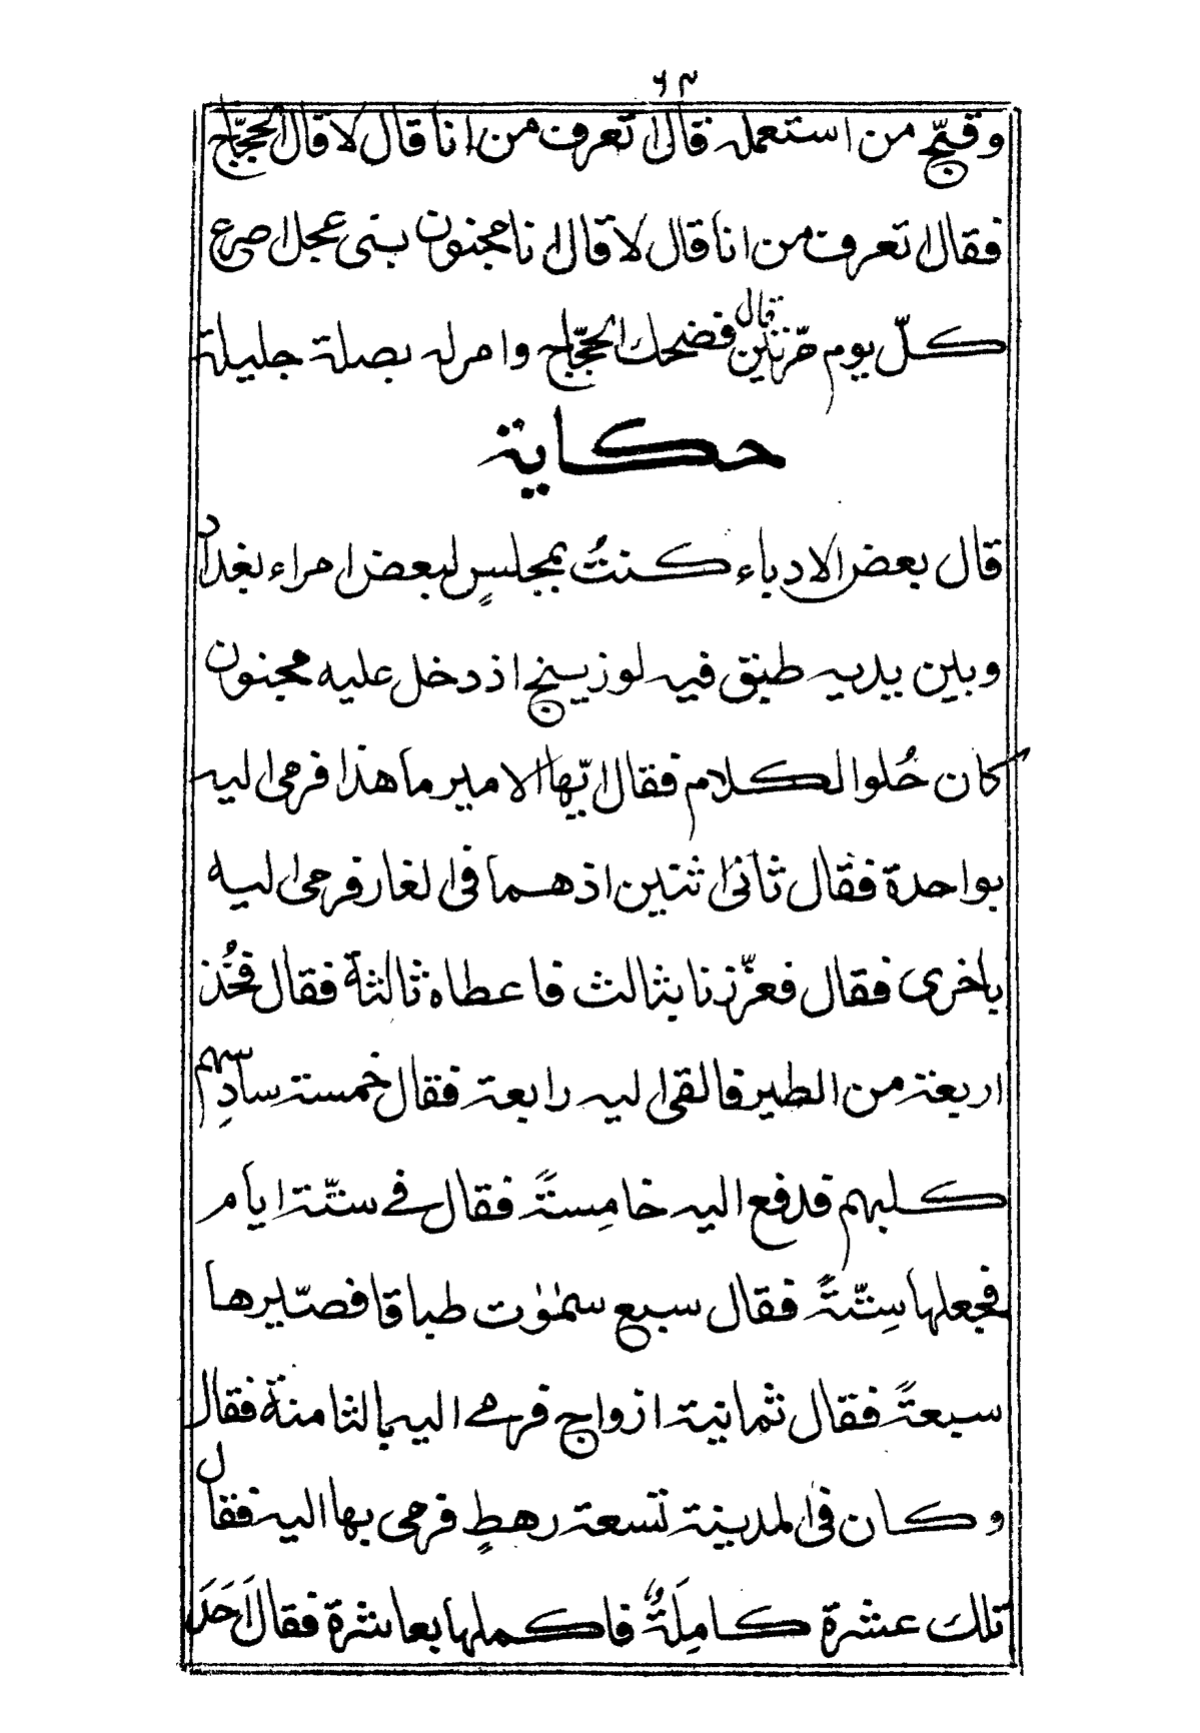 ٦٣
وقبّح من استعمله قال اتعرف من انا قال لا قال الحجّاج
فقال اتعرف من انا قال لا قال انا مجنون بنى عجل اصرع
كلّ يوم مرّتين قال فضحك الحجّاج وامر له بصلة جليلة
حكاية
قال بعض الادباء كنتُ بمجلسٍ لبعض امراء بغداد
وبين يديه طبق فيه لوزينج اذ دخل عليه مجنون
كان حُلوا لكلام فقال ايّها الامير ما هذا فرمى اليه
بواحدة فقال ثانى اثنين اذ هما فى الغار فرمى اليه
باخرى فقال فعزّزنا بثالث فاعطاه ثالثة فقال فخُذ
اربعة من الطير فالقى اليه رابعة فقال خمسة سادِسهم
كلبهم فدفع اليه خامِسةً فقال فے ستّة ايام
فجعلها سِتّةً فقال سبع سمٰوٰت طباقا فصيّرها
سبعةً فقال ثمانية ازواج فرمے اليه بالثامنة فقال
وكان فى المدينة تسعة رهطٍ فرمى بها اليه فقال
تلك عشرة كامِلَةٌ فاكملها بعاشرة فقال اَحَدَ